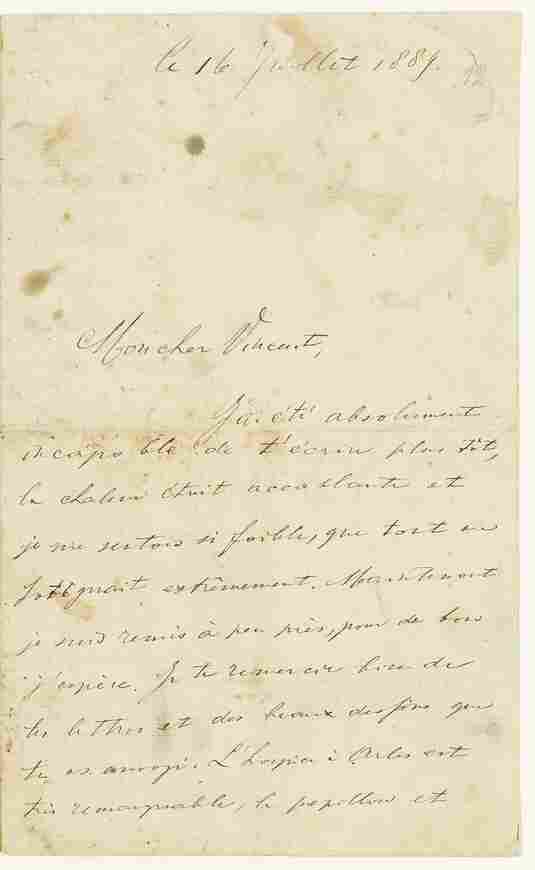 le 16 Juillet 1889.
Mon cher Vincent,
J'ai été absolument
incapable de t'écrire plus tôt,
la chaleur était accablante et
je me sentais si faible, que tout me
fatiguait extrêmement. Maintenant
je suis remis à peu près, pour de bon
j'espère. Je te remercie bien de
tes lettres et des beaux dessins que
tu as envoyé. L'hospice à Arles est
très remarquable, le papillon et